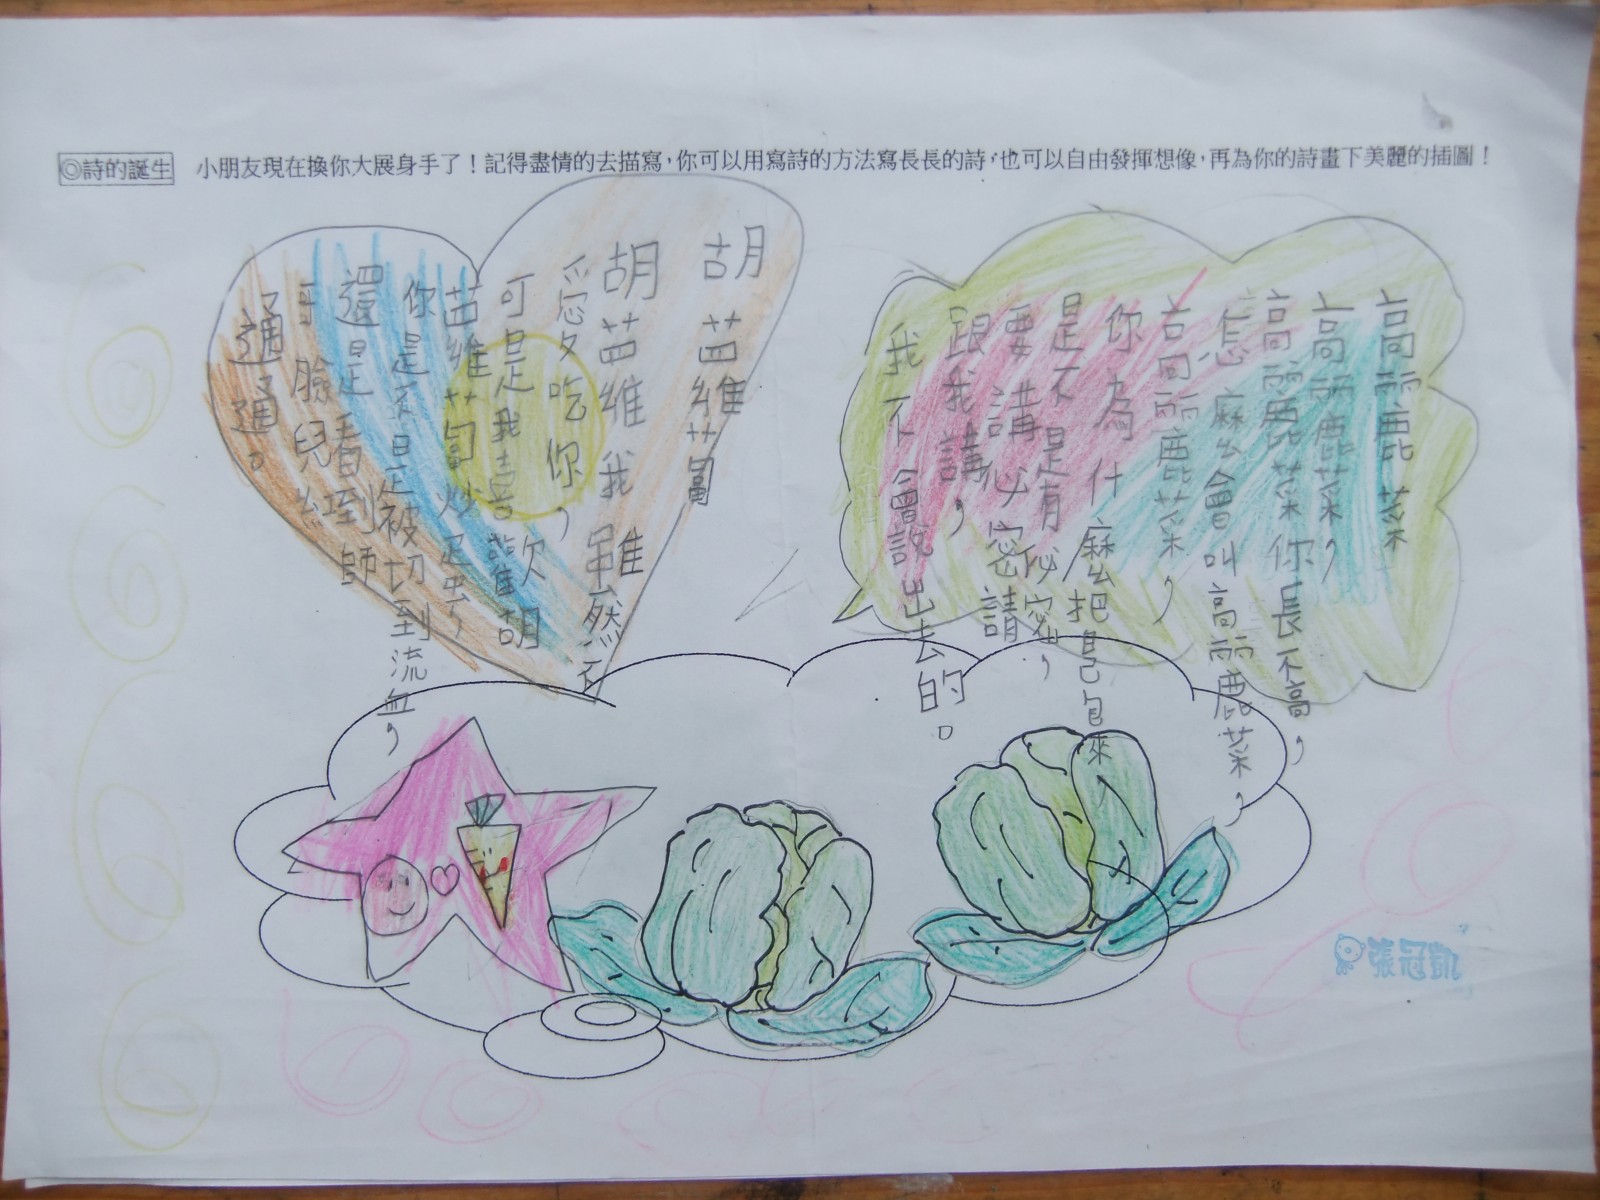 ◎詩的誕生
小朋友現在換你大展身手了！記得盡情的去描寫，你可以用寫詩的方法寫長長的詩，也可以自由發揮想像，再為你的詩畫下美麗的插圖！
高麗菜
高麗菜，
高麗菜你長不高，
怎麼會叫高麗菜，
高麗菜，
你為什麼把自己包來，
是不是有必密，
要講必密請
跟我講，
我不會說出去的。
胡苗維蔔
胡苗維我雖然不
愛吃你，
可是我喜歡胡
苗維蔔炒蛋
你是不是被切到流血，
還是看到師
臉兒紅
通通。
張冠凱